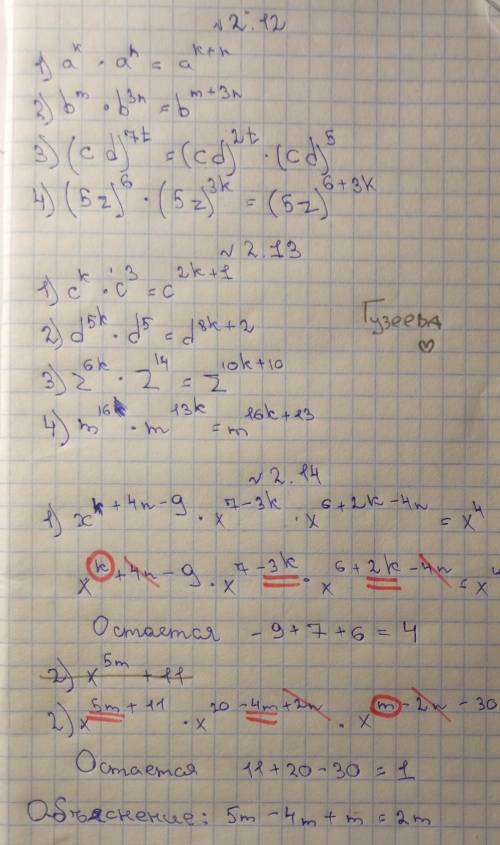 № 2.12
1) a^k · a^n = a^{k+n}
2) b^m · b^{3n} = b^{m+3n}
3) (cd)^{7t} = (cd)^{2t} · (cd)^5
4) (5z)^6 · (5z)^{3k} = (5z)^{6+3k}
№ 2.13
1) c^k · c^3 = c^{2k+1}
2) d^{5k} · d^5 = d^{8k+2}
Гузеева ♡
3) z^{6k} · z^{14} = z^{10k+10}
4) m^{16} · m^{13k} = m^{16k+13}
№ 2.14
1) x^{k+4n-9} · x^{7-3k} · x^{6+2k-4n} = x^4
x^{k+4n-9} · x^{7-3k} · x^{6+2k-4n} = x^4
Остается -9+7+6=4
2) x^{5m}+11
2) x^{5m+11} · x^{20-4m+2n} · x^{m-2n-30}
Остается 11+20-30=1
Объяснение: 5m-4m+m=2m